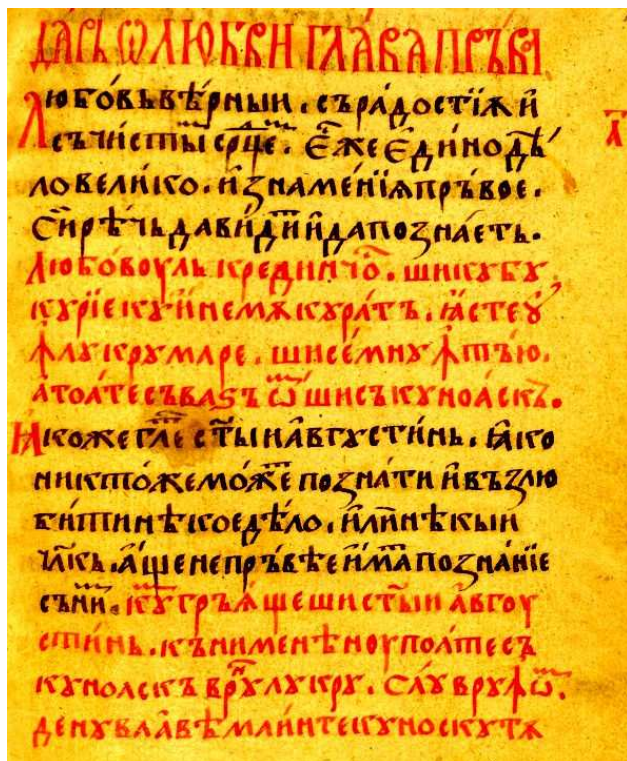 ДАРЬ Ѡ ЛЮБВИ ГЛАВА ПРЪВА
Любо́вь вѣ́рныи . съ ра́достїѫ и҆
а҃
съ чи́стыⷨ срⷣцеⷨ . Є҆́же є҆ди́но дѣ́
ло вели́ко . и҆ знаме́нїѧ пръ́вое .
рѣ́чь и҆ да позна́еть .
Любовоу ль . ши кꙋ бꙋ
кꙋрїе кꙋ и҆́немѫ кꙋра́тъ . ꙗ҆сте ꙋ҆́
ꙟ лꙋкрꙋ маре . ши се́мнꙋ ꙟтъ́ю .
а тоа́те съ ва́ѕъ ѿ ши съ кꙋноа́скъ .
Ꙗкоже гл҃е ст҃ыи а҆́вгꙋсти́нь . ꙗ҆́ко
никто́же мо́жеⷮ позна́ти и҆ възлю
бити нѣ́кое дѣ́ло , и҆ли нѣ́кыи
чл҃кь . а҆́ще не пръ́вѣе и҆́маⷮ позна́нїе
съ ниⷨ . Кꙋⷨ гръꙗ҆́ще ши ст҃ыи а҆вгоу
сти́нь . къ ни́мене нꙋ поа́те съ
кꙋноаскъ врꙋⷩ лꙋкрꙋ . саꙋ врꙋⷩ ѡⷨ .
де нꙋ ва а́вѣ маи́нте кꙋноскꙋтѫ